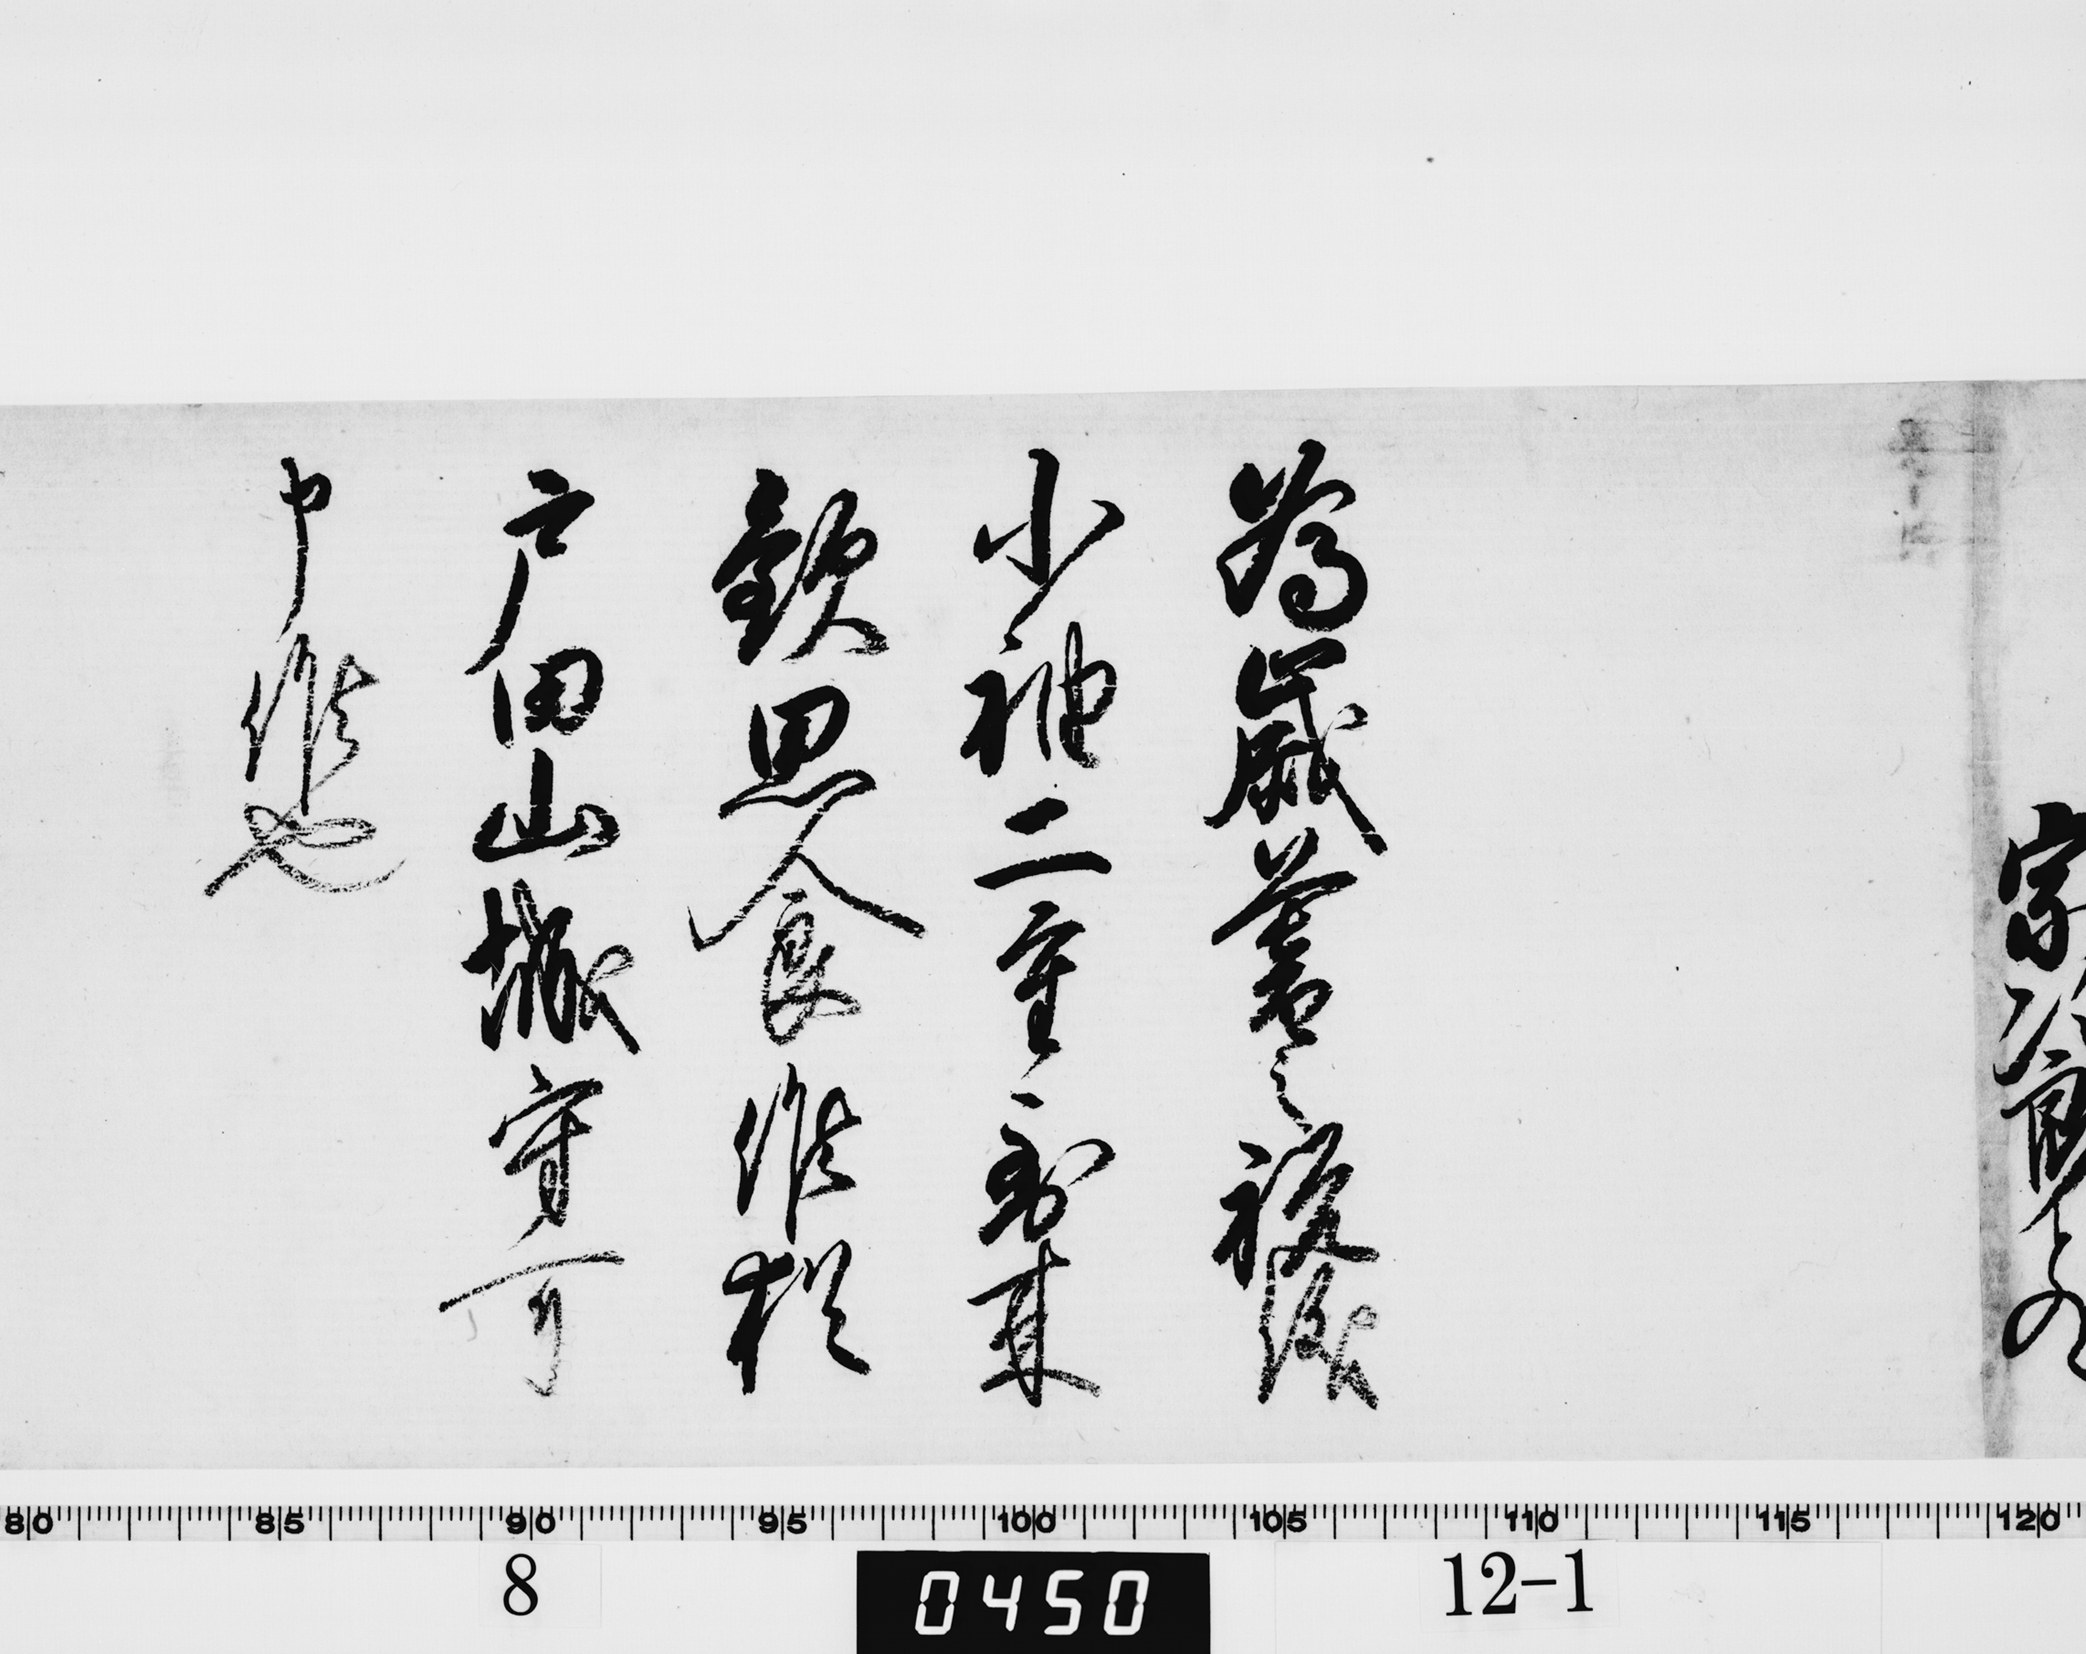 為歳暮之祝儀
小袖二重到来
歓思食候猶
戸田山城守可
申候也
80 85 90 95 100 105 110 115 120
8 0450 12-1